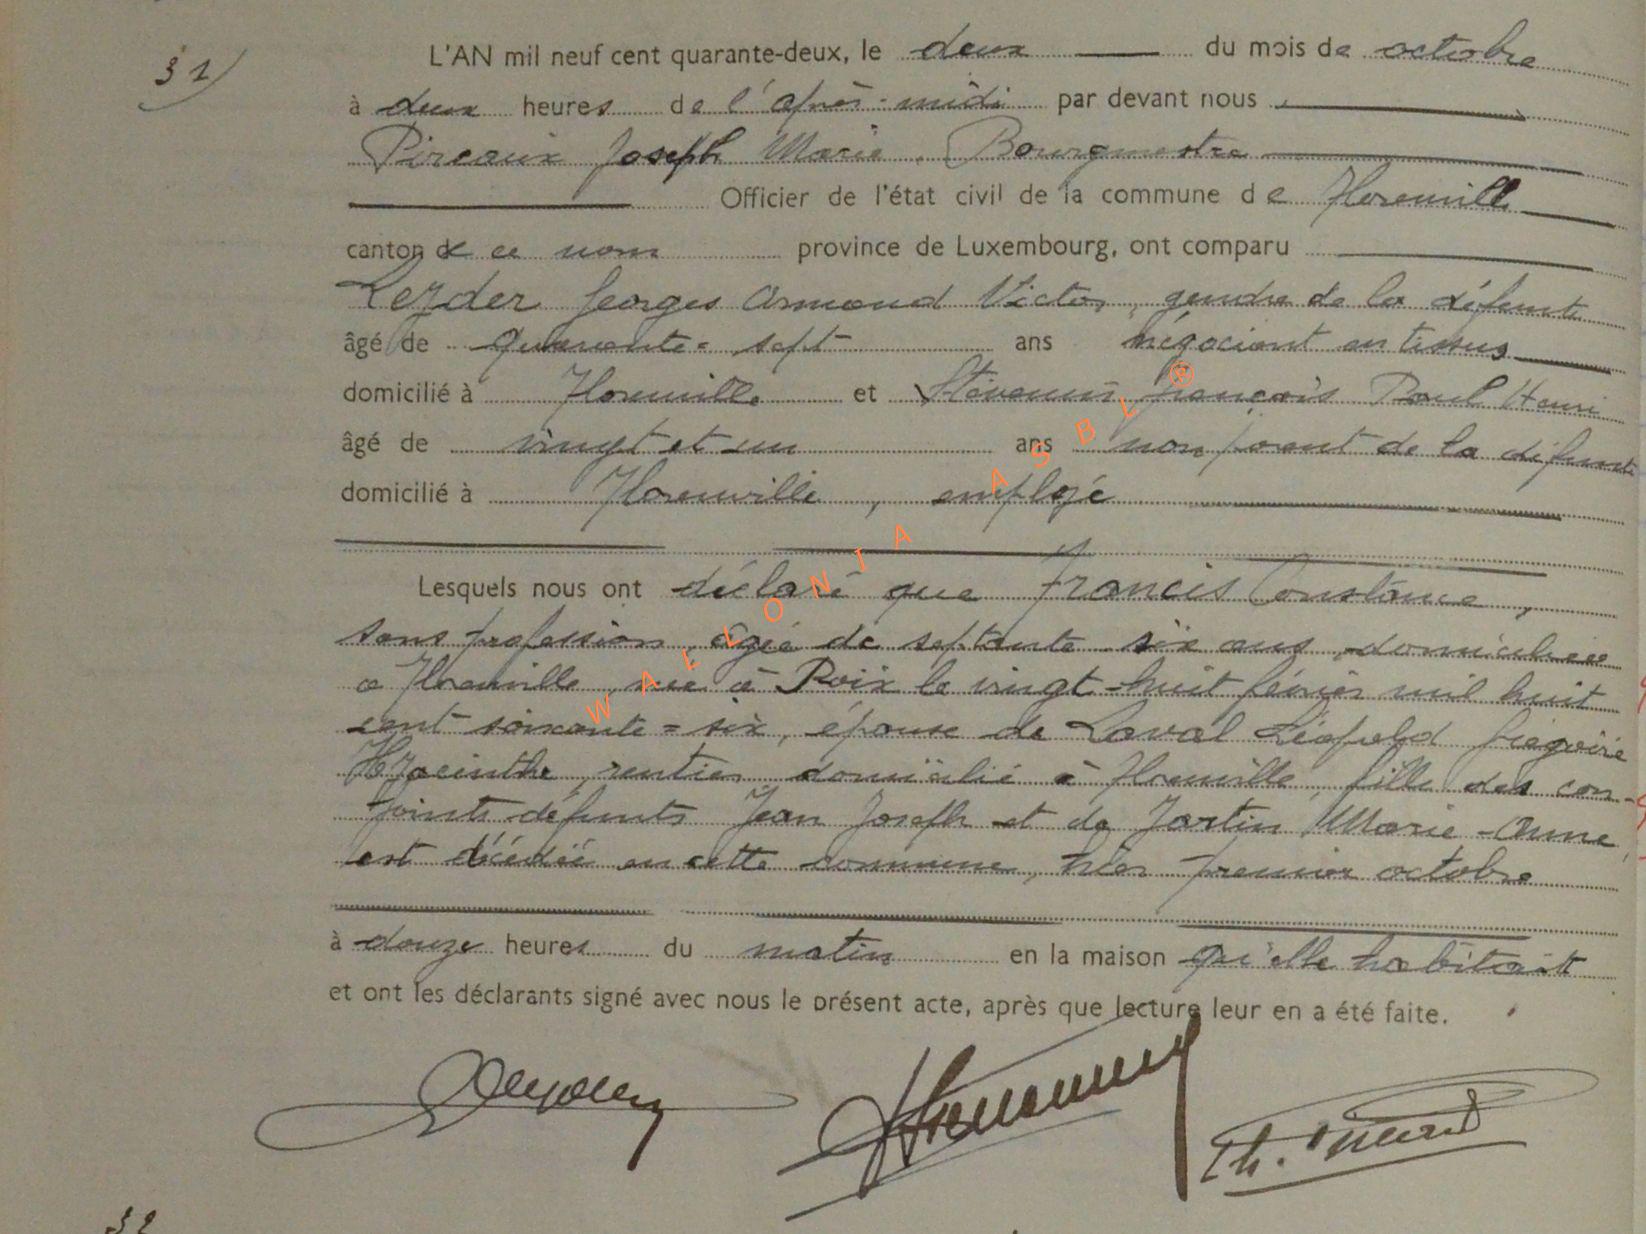 31)
L'AN mil neuf cent quarante-deux, le deux du mois de octobre
à deux heures de l'après-midi par devant nous
Pireaux Joseph Marie, Bourgmestre
Officier de l'état civil de la commune de Florenville
canton de ce nom province de Luxembourg, ont comparu
Lezder Georges Armand Victor, gendre de la défunte
âgé de quarante-sept ans négociant en tissus
domicilié à Florenville et Stévenin François Paul Henri
âgé de vingt et un ans non parent de la défunte
domicilié à Florenville, employé
Lesquels nous ont déclaré que Francis Constance,
sans profession, agée de septante-six ans, domiciliée
à Florenville, née à Roix le vingt-huit février mil huit
cent soixante=six, épouse de Laval Léopold Grégoire
Hyacinthe, rentier, domicilié à Florenville, fille des con-
joints défunts Jean Joseph et de Jartin Marie-Anne,
est décédée en cette commune, hier premier octobre
à douze heures du matin en la maison qu'elle habitait
et ont les déclarants signé avec nous le présent acte, après que lecture leur en a été faite.
32
WALLONIA ASBL ®